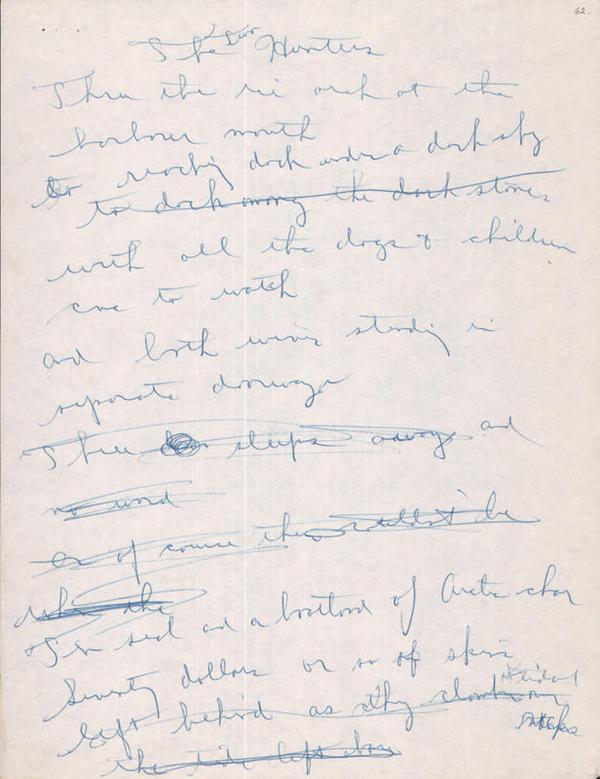 62.
The Hunters
Thru the ice arch at the
harbour mouth
to rocking dock under a dark sky
to dock among the dark stones
with all the dogs & children
come to watch
and both wives standing in
separate doorways
Three sleeps away and
no word
of course there wouldn't be
the
Ten seal and a boatload of Arctic char
Seventy dollars or so of skins
left behind as they climb
the tide left